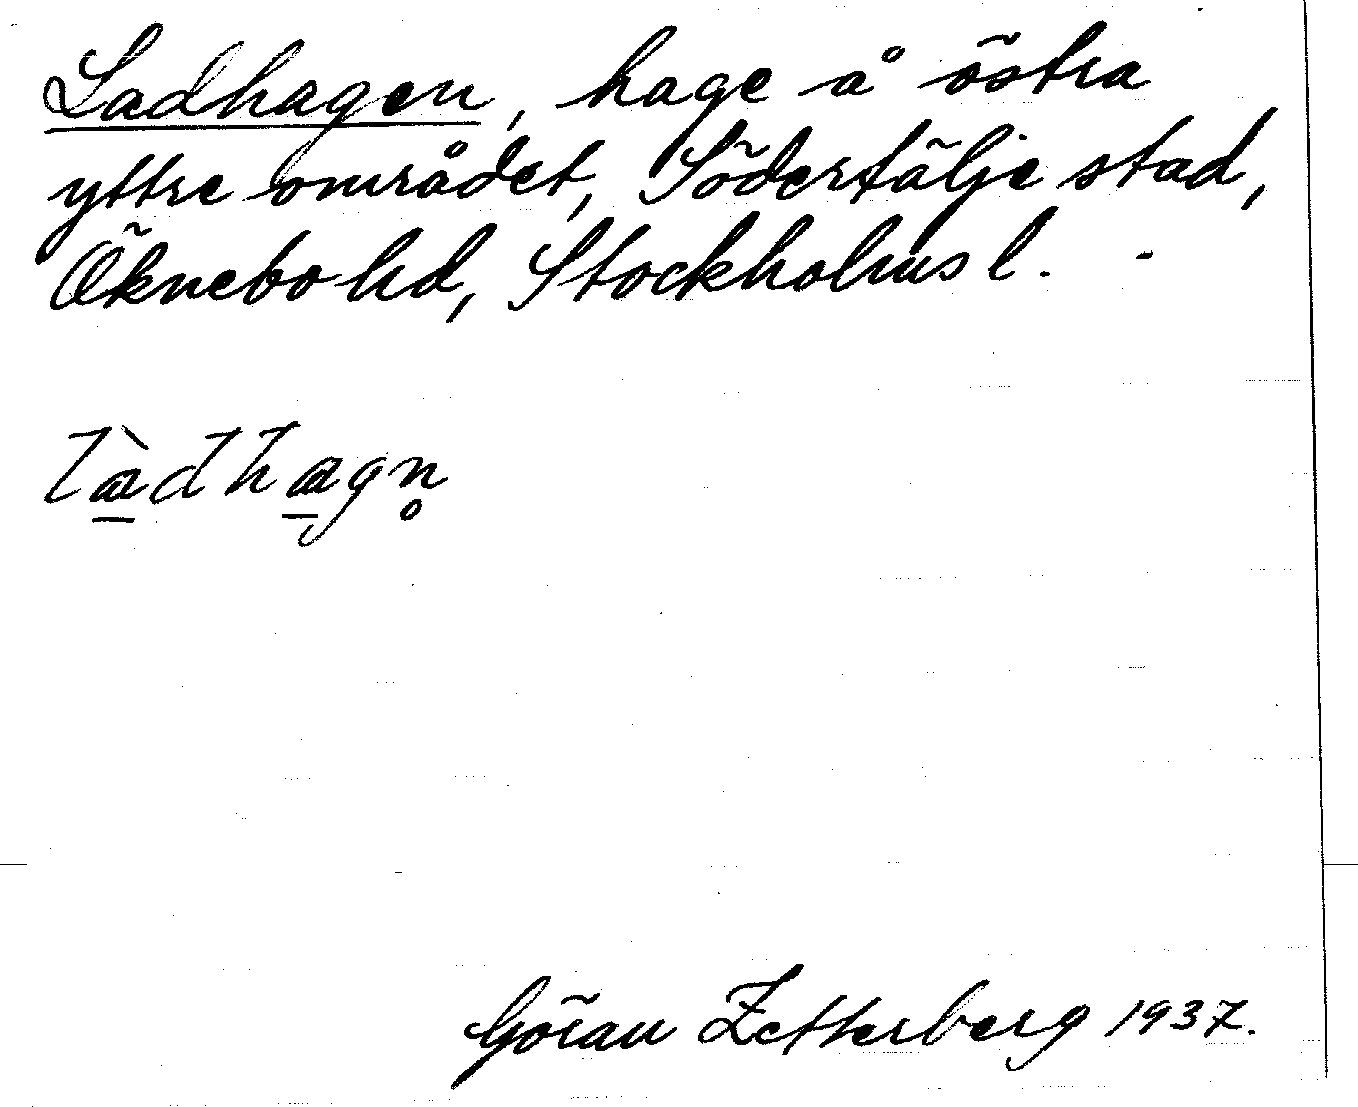 Ladhagen, hage å östra
yttre området, Södertälje stad,
Öknebo hd, Stockholms l. -
làdhagn̥
Göran Zetterberg 1937.